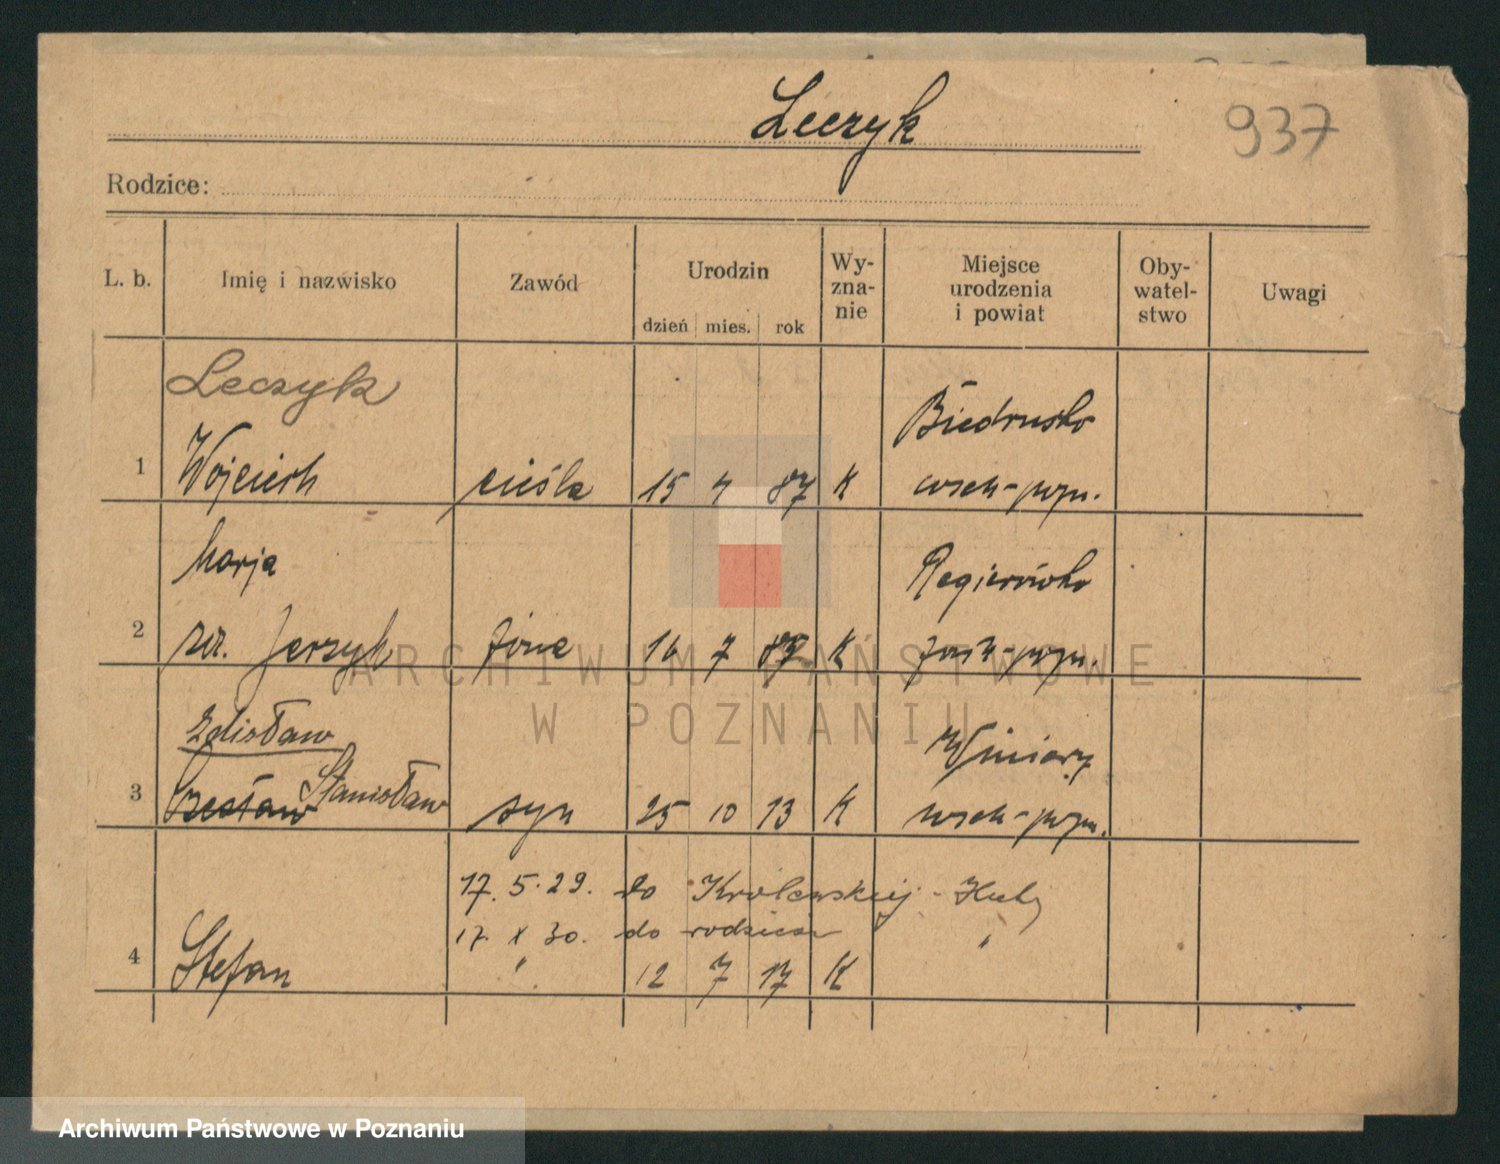 Leczyk
937
Rodzice:
L. b. Imię i nazwisko Zawód Urodzin dzień mies. rok Wy-zna-nie Miejsce urodzenia i powiat Oby-watel-stwo Uwagi
Leczyk
Biedrusko
1 Wojciech cieśla 15 4 87 K wsch-pozn.
Marja
2 Jerzyk żona 16 7 K pozn.
Zdisław
Winiary
3 Czesław Stanisław syn 25 10 13 K wsch-pozn.
17. 5. 29. do Królewskiej-Huty
17. X 30. do rodziców "
4 Stefan " 12 7 17 K
ARCHIWUM PAŃSTWOWE
W POZNANIU
Archiwum Państwowe w Poznaniu